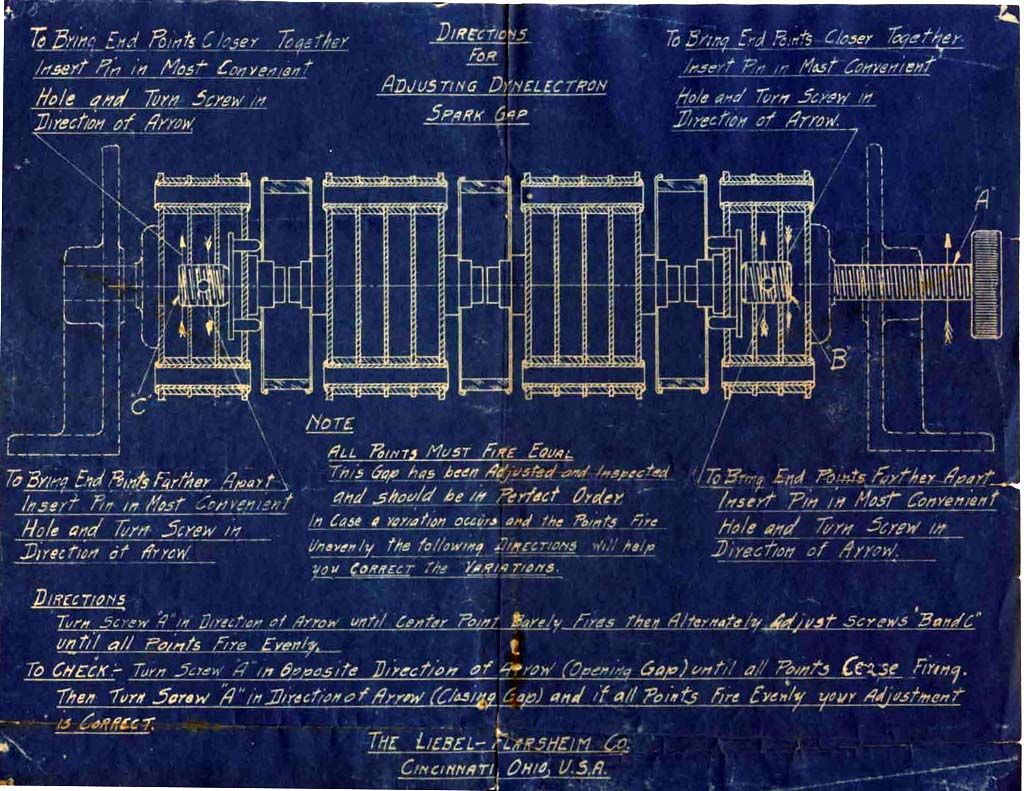 To Bring End Points Closer Together
Insert Pin in Most Convenient
Hole and Turn Screw in
Direction of Arrow.
DIRECTIONS
FOR
ADJUSTING DYNELECTRON
SPARK GAP
To Bring End Points Closer Together
Insert Pin in Most Convenient
Hole and Turn Screw in
Direction of Arrow.
"A"
"B"
C
To Bring End Points Farther Apart
Insert Pin in Most Convenient
Hole and Turn Screw in
Direction of Arrow
NOTE
ALL POINTS MUST FIRE EQUAL
This Gap has been Adjusted and Inspected
and should be in Perfect Order
In Case a variation occurs and the Points Fire
Unevenly the following DIRECTIONS will help
you CORRECT the VARIATIONS.
To Bring End Points Further Apart
Insert Pin in Most Convenient
Hole and Turn Screw in
Direction of Arrow.
DIRECTIONS
Turn Screw "A" in Direction of Arrow until Center Point Barely Fires then Alternately Adjust Screws "B and C"
until all Points Fire Evenly.
TO CHECK:- Turn Screw "A" in Opposite Direction of Arrow (Opening Gap) until all Points Cease Firing.
Then Turn Screw "A" in Direction of Arrow (Closing Gap) and if all Points Fire Evenly your Adjustment
is CORRECT.
THE LIEBEL-FLARSHEIM CO.
CINCINNATI, OHIO, U.S.A.